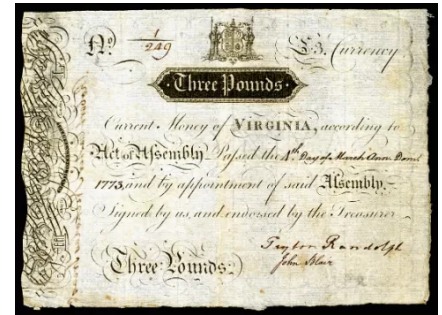 No. 1/249 £3. Currency
Three Pounds
Current Money of VIRGINIA, according to
Act of Assembly Passed the 4th Day of March Anno Domi
1773, and by appointment of said Assembly.
Signed by us, and endorsed by the Treasurer
Peyton Randolph
John Blair
Three Pounds.